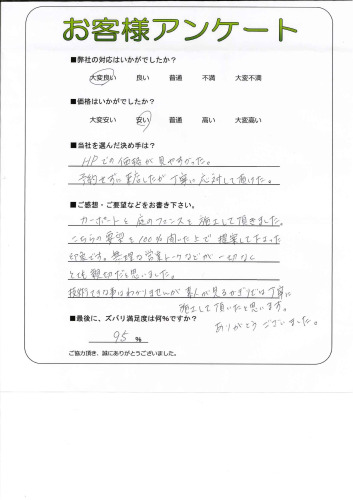 お客様アンケート
■弊社の対応はいかがでしたか？
大変良い 良い 普通 不満 大変不満
■価格はいかがでしたか？
大変安い 安い 普通 高い 大変高い
■当社を選んだ決め手は？
HPでの価格が見やすかった。
予約せずに来店したが丁寧に応対して頂けた。
■ご感想・ご要望などをお書き下さい。
カーポートと庭のフェンスを施工して頂きました。
こちらの要望を100%聞いた上で提案して下さった
印象です。無理な営業トークなどが一切なく
とても親切だと思いました。
技術的な事はわかりませんが素人が見るかぎりは丁寧に
施工して頂いたと思います。
ありがとうございました。
■最後に、ズバリ満足度は何%ですか？
95 %
ご協力頂き、誠にありがとうございました。